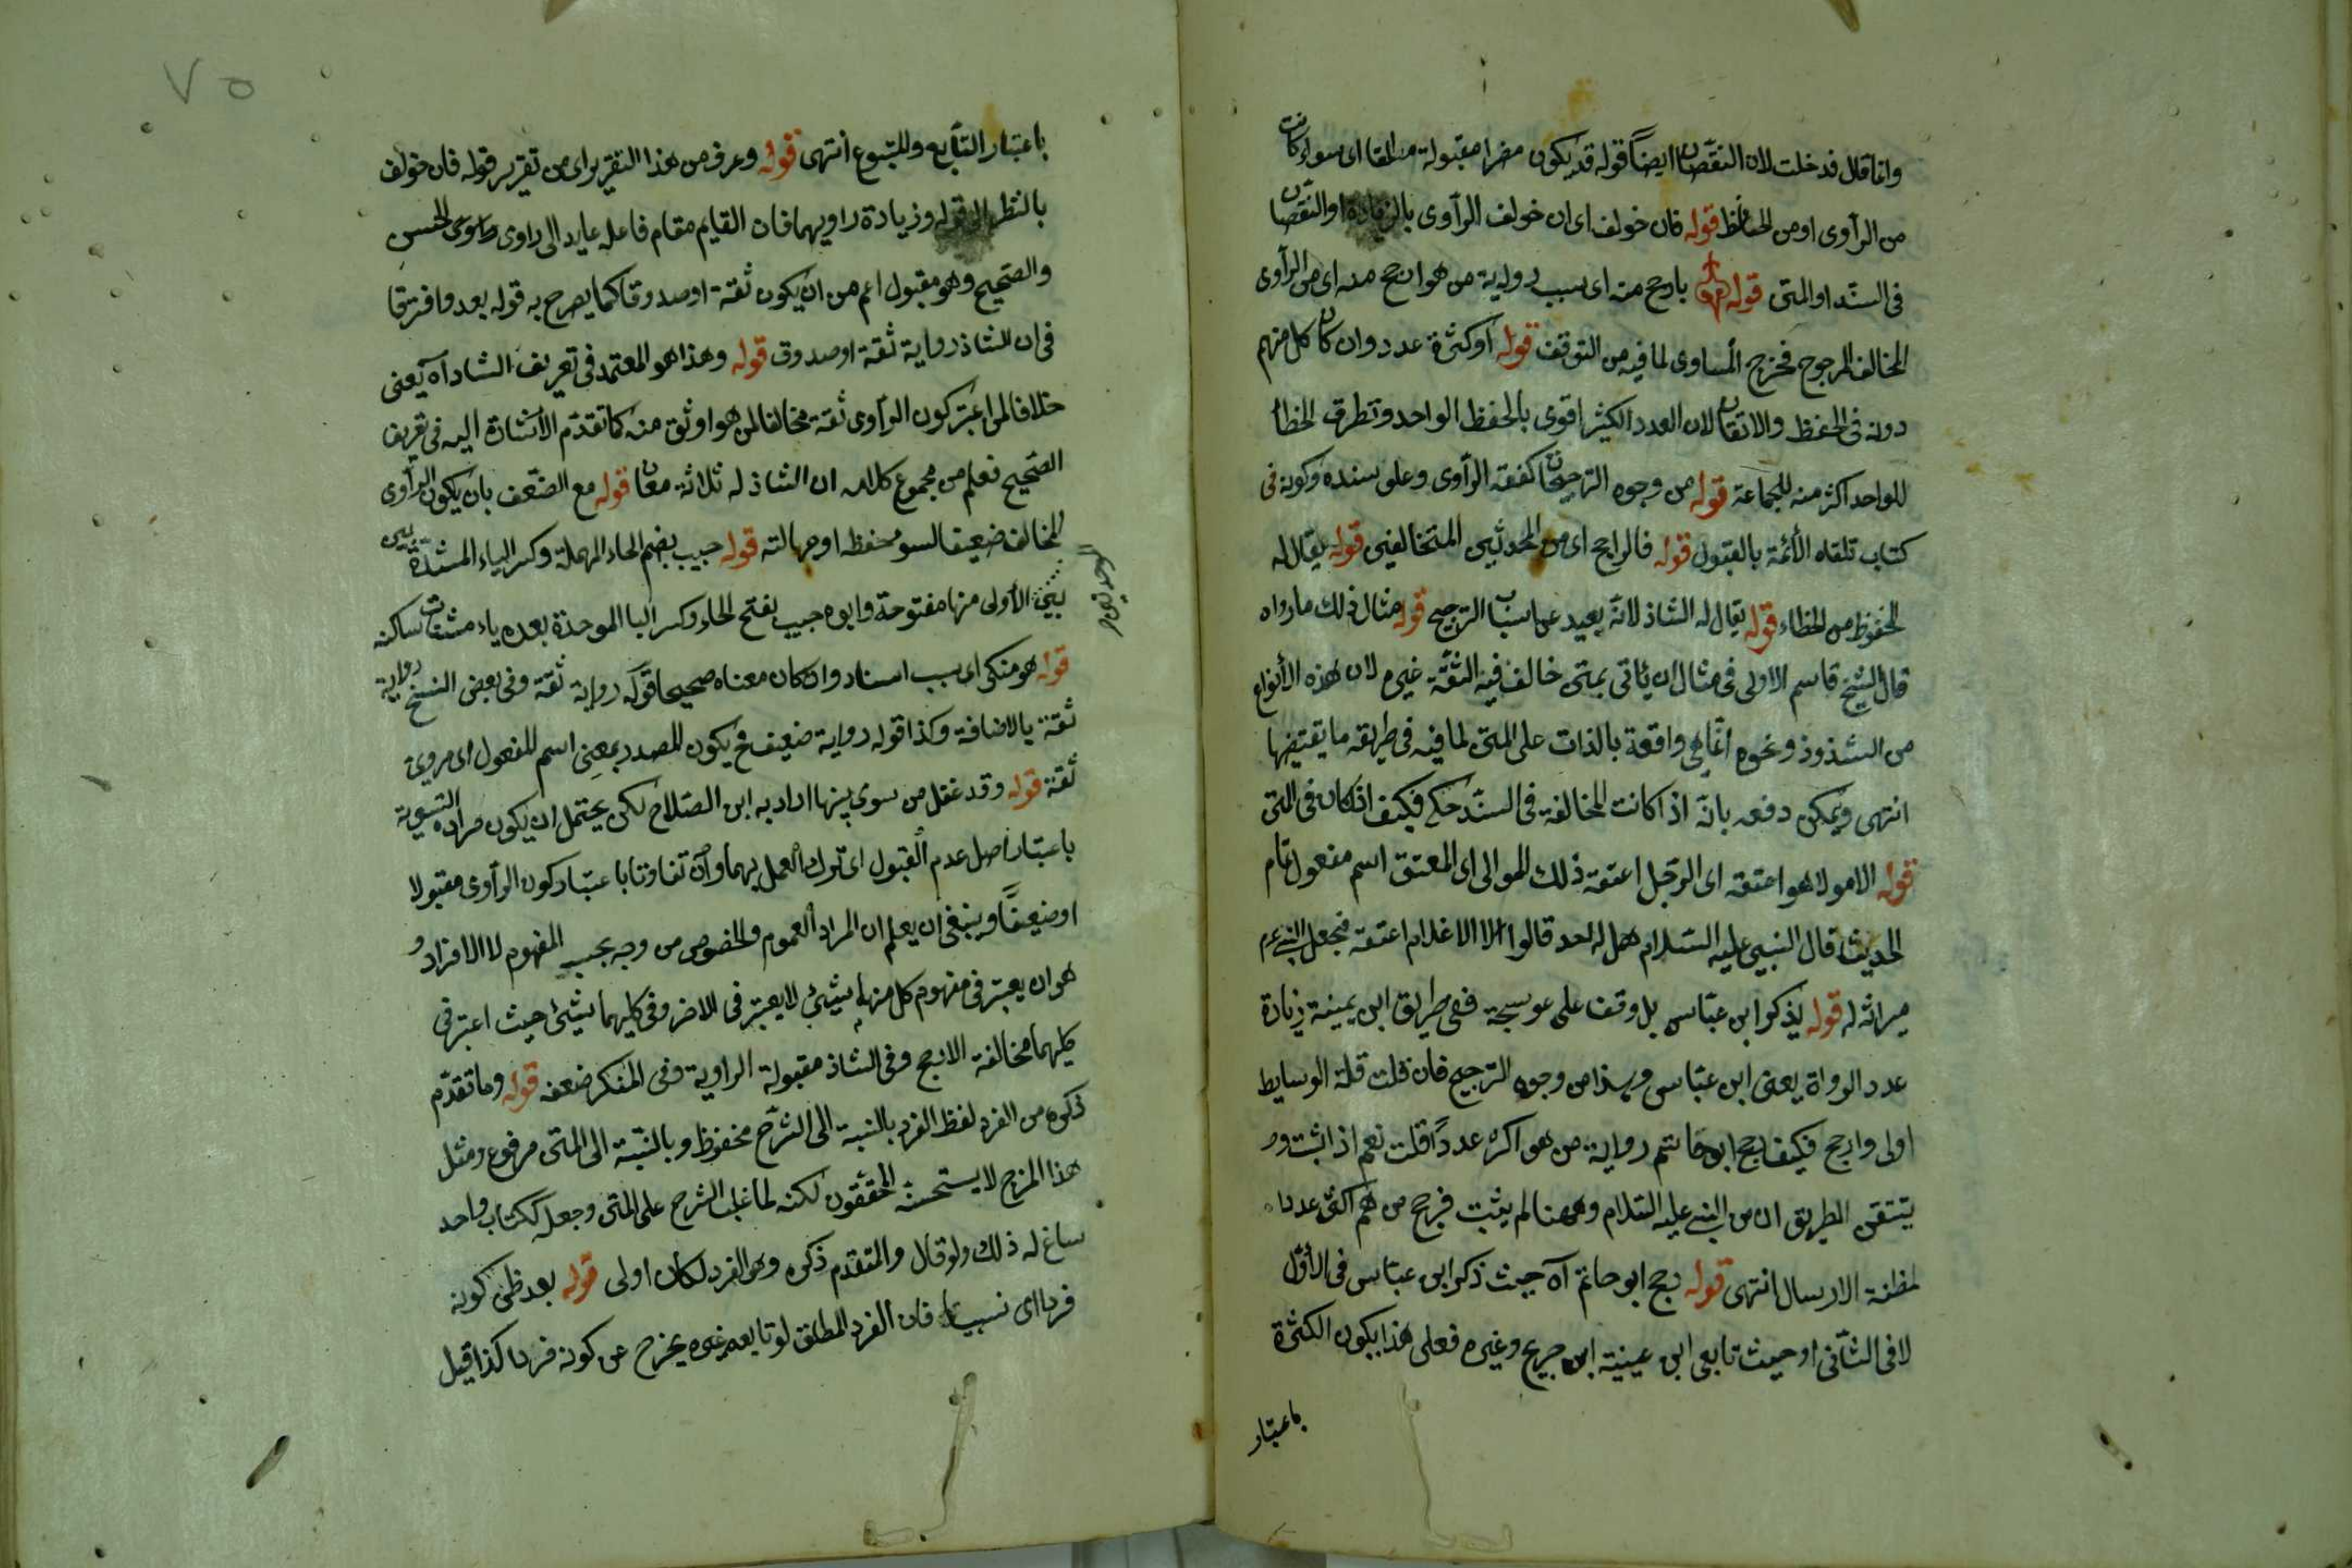 وانما قال فدخلت لان النقصان ايضاً قوله قد يكون مضرا مقبولة مطلقا اى سواء كانت
من الرآوى او من الحافظ قوله فان خولف اى ان خولف الرآوى بالزيادة او النقصان
فى السند او المتن قوله بارجح منه اى بسبب رواية من هو ارجح منه اى من الرآوى
المخالف المرجوح فخرج المساوى لما فيه من التوقف قوله او كثرة عدد وان كان كل منهم
دونه فى الحفظ والاتقان لان العدد الكثير اقوى بالحفظ الواحد وتطرق الخطأ
للواحد اكثر منه للجماعة قوله من وجوه الترجيحات كفقه الرآوى وعلو سنده وكونه فى
كتاب تلقاه الأئمة بالقبول قوله فالراجح اى من الحدثين المتخالفين قوله يقال له
المحفوظ من الخطاء قوله يقال له الشاذ لانه بعيد عن اسباب الترجيح قوله مثال ذلك ما رواه
قال الشيخ قاسم الاولى فى مثال ان يأتى بمتن خالف فيه الثقة غيره لان هذه الأنواع
من الشذوذ ونحوه انما هى واقعة بالذات على المتن لما فيه فى طريقه ما يقتضيها
انتهى ويمكن دفعه بانه اذا كانت المخالفة فى السند حكم فكيف اذا كان فى المتن
قوله الا مولا هو اعتقه اى الرجل اعتقه ذلك الموالى اى المعتق اسم مفعول تمام
الحديث قال النبى عليه السلام هل له احد قالوا لا الا غلام اعتقه فجعل النبى عم
ميراثه له قوله يذكر ابن عباس بل وقف على عوسجة ففى طريق ابن عيينة زيادة
عدد الرواة يعنى ابن عباس وهذا من وجوه الترجيح فان قلت قلة الوسايط
اولى وارجح فكيف رجح ابو حاتم رواية من هو اكثر عدداً قلت نعم اذا ثبت و
يتيقن الطريق ان من النبى عليه السلام وههنا لم يثبت فرجح من هم اكثر عددا
لمظنة الارسال انتهى قوله رجح ابو حاتم آه حيث ذكر ابن عباس فى الأول
لا فى الثانى او حيث تابعى ابن عيينة ابن جريج وغيره فعلى هذا يكون الكثرة
باعتبار
٧٥
باعتبار التابع والمتبوع انتهى قوله وعرف من هذا التقرير اى من تقرير قوله فان خولف
بالنظر الى قوله وزيادة راويهما فان القايم مقام فاعله عايد الى راوى راوى الحسن
والصحيح وهو مقبول اعم من ان يكون ثقة او صدوقا كما يصرح به قوله بعد وافترقا
فى ان الشاذ رواية ثقة او صدوق قوله وهذا هو المعتمد فى تعريف الشاذ آه يعنى
خلافا لمن اعتبر كون الرآوى ثقة مخالفا لمن هو اوثق منه كما تقدم الأشارة اليه فى تعريف
الصحيح فعلم من مجموع كلامه ان الشاذ له ثلاثة معان قوله مع الضعف بان يكون الرآوى
المخالف ضعيفا لسوء حفظه او جهالته قوله حبيب بضم الحاء المهملة وكسر الياء المشددة
بين الأولى منها مفتوحة وابوه حبيب بفتح الحاء وكسر البا الموحدة بعده ياء مشناة ساكنه
قوله هو منكر اى بسبب اسناد وان كان معناه صحيحا قوله رواية ثقة وفى بعض النسخ رواية
ثقة بالاضافة وكذا قوله رواية ضعيف فح يكون المصدر بمعنى اسم المفعول اى مروى
ثقة قوله وقد غفل من سوى بينهما اراد به ابن الصلاح لكن يحتمل ان يكون مراده التسوية
باعتبار اصل عدم القبول اى ترك العمل بهما وان تفاوتا باعتبار كون الرآوى مقبولا
او ضعيفاً وينبغى ان يعلم ان المراد العموم والخصوص من وجه بحسب المفهوم لا الافراد و
هو ان يعتبر فى مفهوم كل منهما شيئ لا يعتبر فى الاخر وفى كليهما شيئ حيث اعتبر فى
كليهما مخالفة الارجح وفى الشاذ مقبولة الراوية وفى المنكر ضعفه قوله وما تقدم
ذكره من الفرد لفظ الفرد بالنسبة الى الشرح محفوظ وبالنسبة الى المتن مرفوع ومثل
هذا المزج لا يستحسنه المحققون لكنه لما غلب الشرح على المتن وجعل ككتاب واحد
ساغ له ذلك ولو قال والمتقدم ذكره وهو الفرد لكان اولى قوله بعد ظن كونه
فردا اى نسبيا فان الفرد المطلق لو تابعه غيره يخرج عن كونه فردا كذا قيل